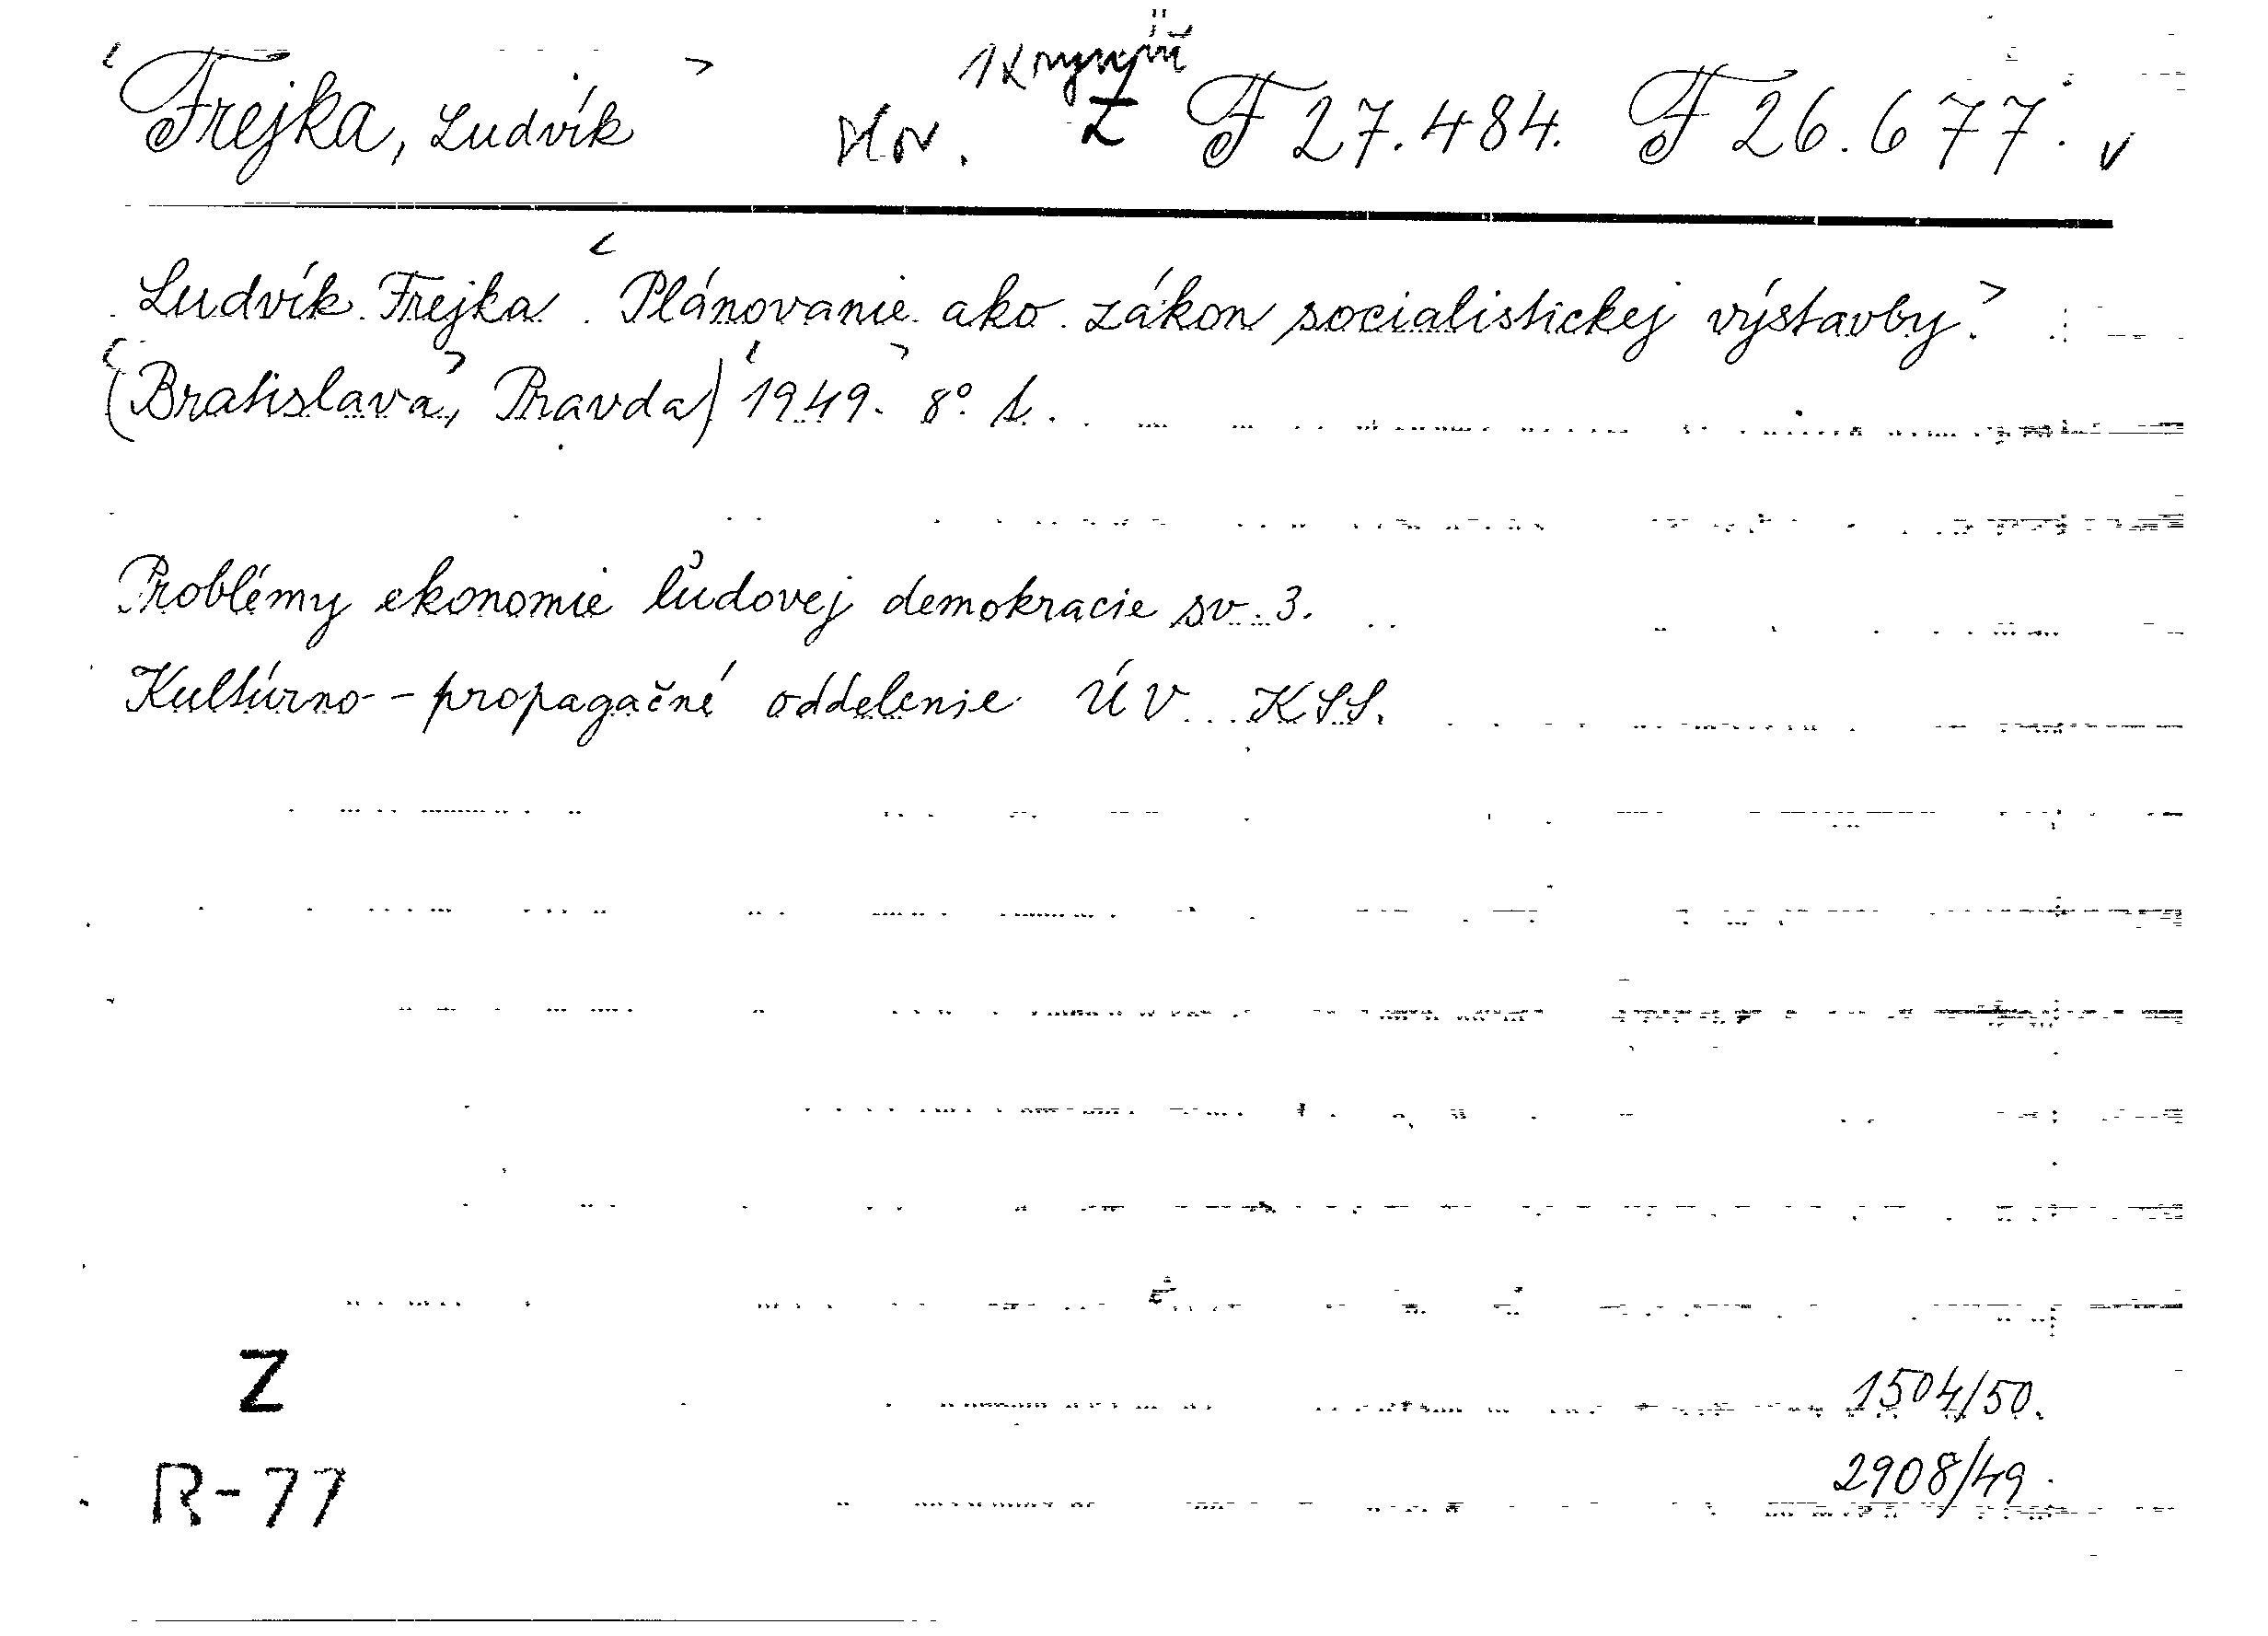 Frejka, Ludvík slov. Z F 27.484. F 26.677. v
Ludvík Frejka: Plánovanie ako zákon socialistickej výstavby.
(Bratislava, Pravda) 1949. 8° s.
Problémy ekonomie ľudovej demokracie sv. 3.
Kultúrno-propagačné oddelenie ÚV KSS.
Z
1504/50.
2908/49.
R-77